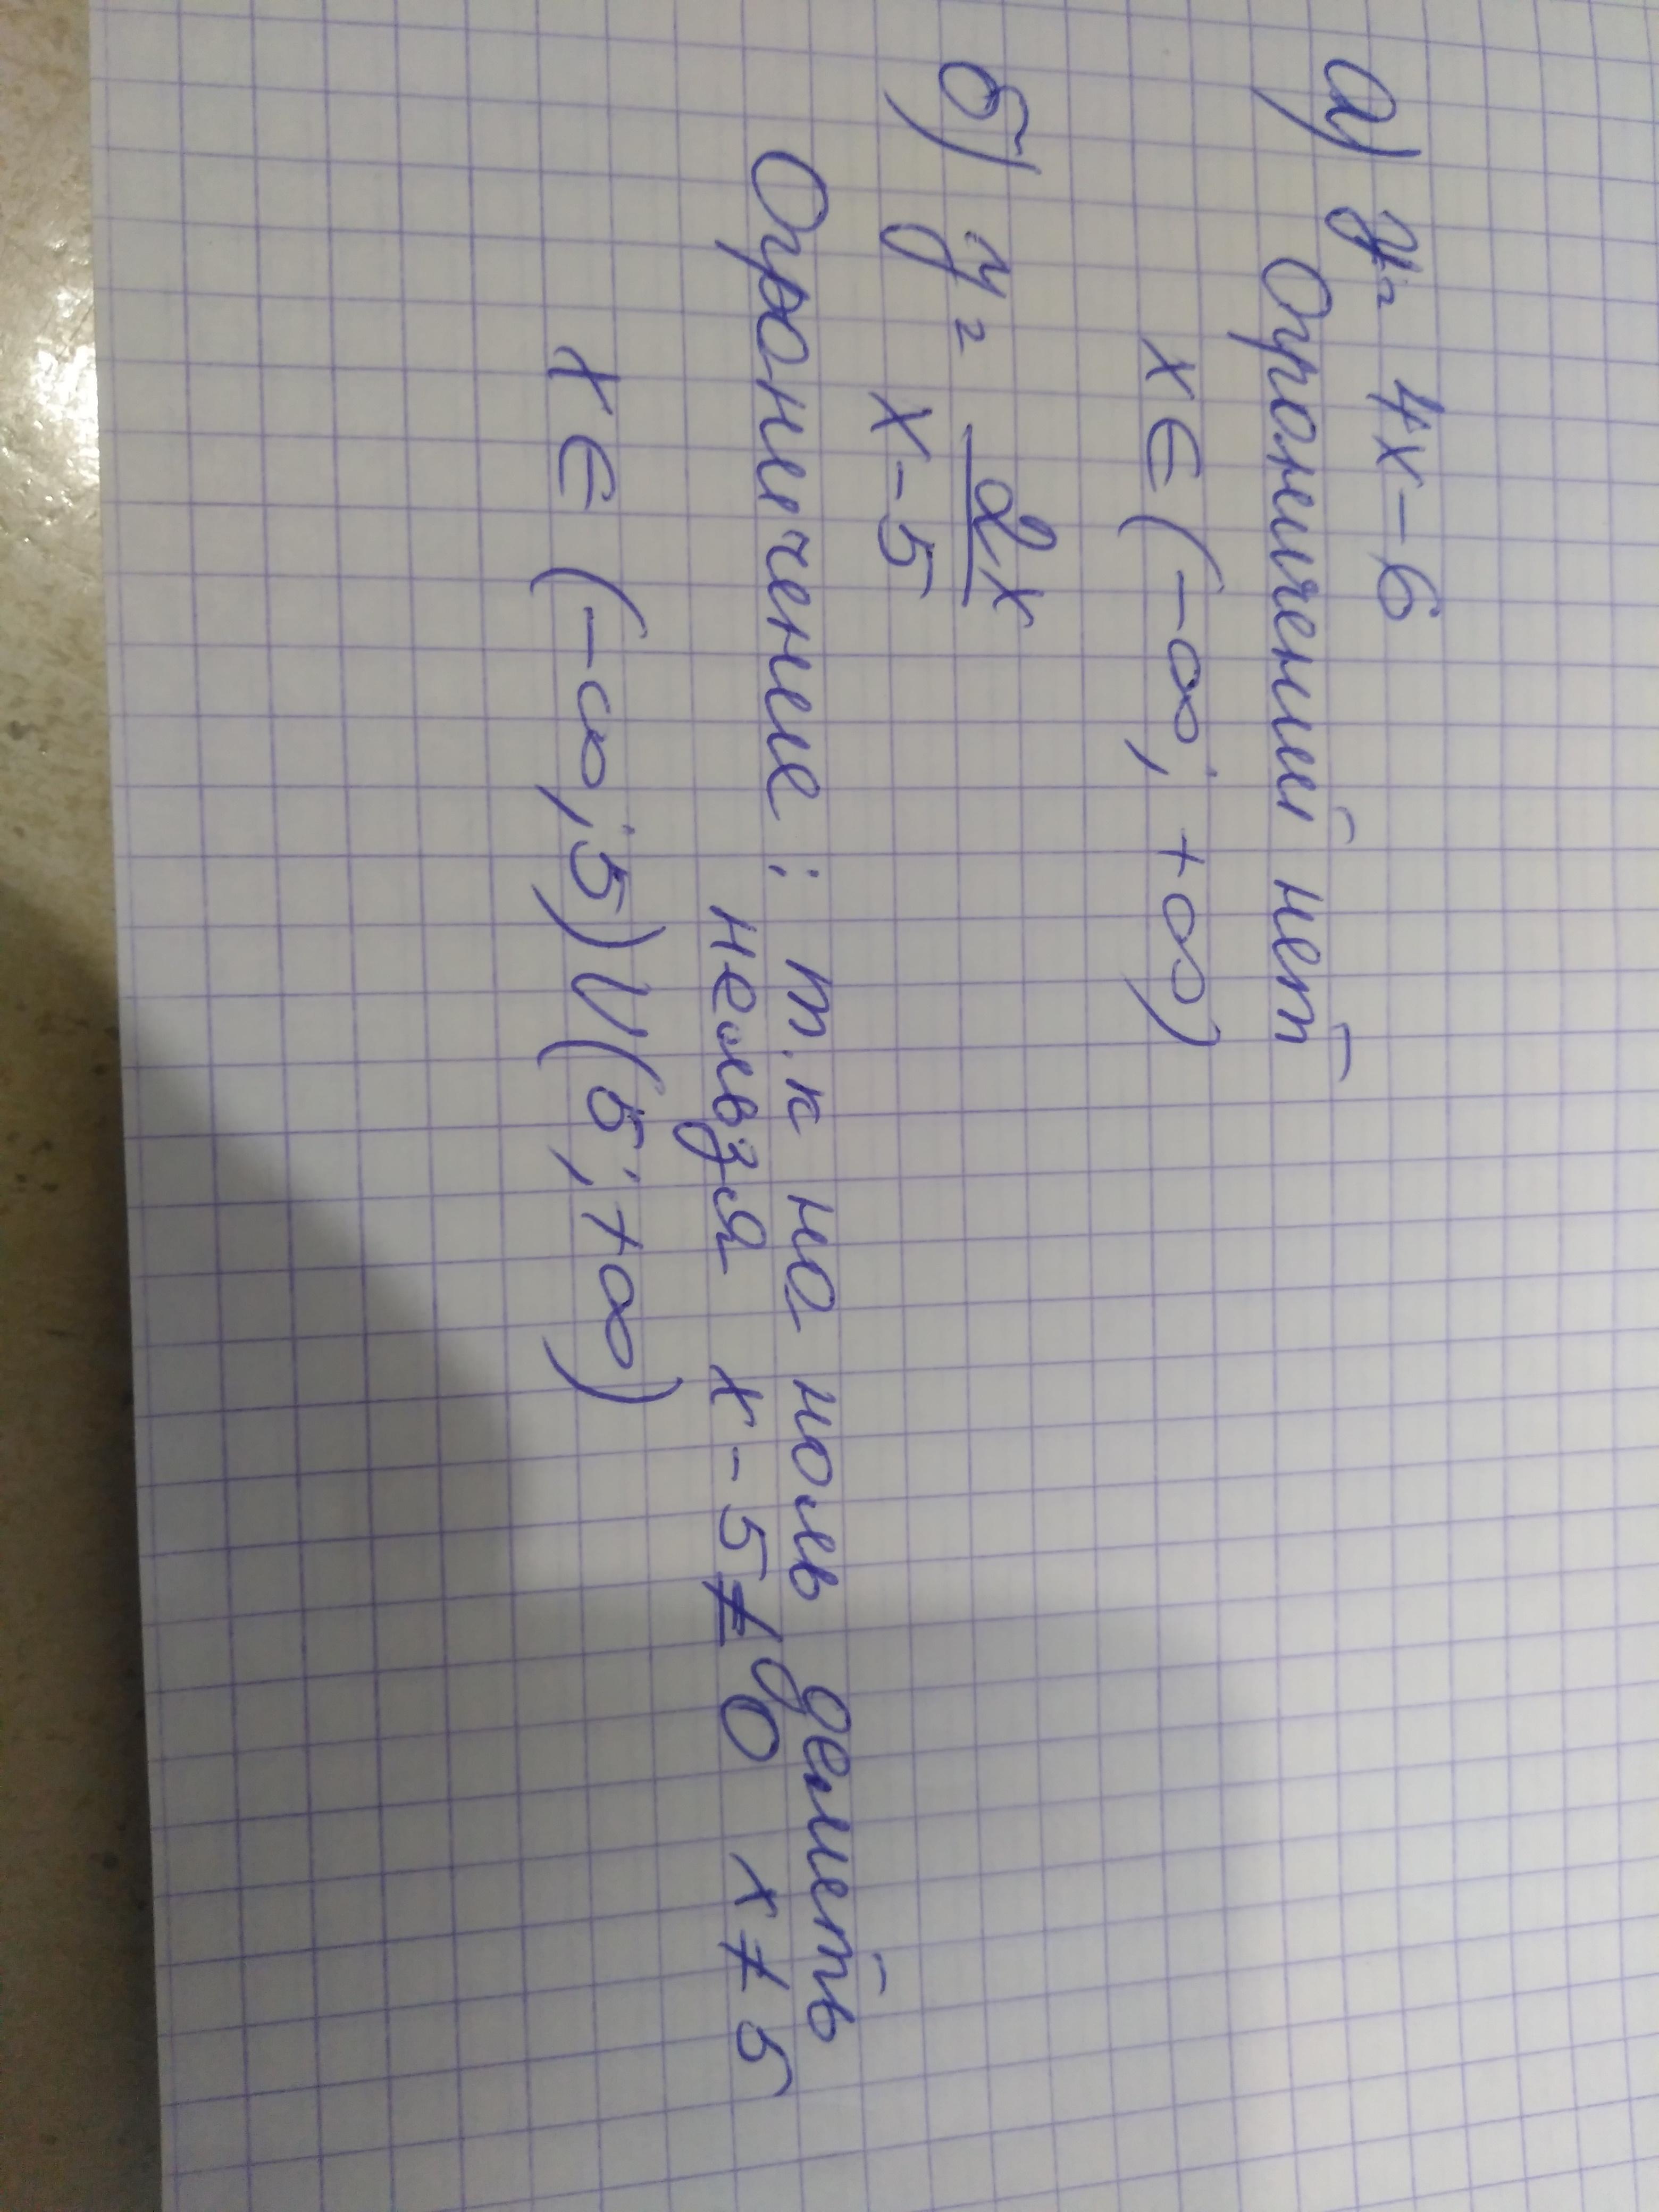 а) y = 4x - 6
Ограничений нет
x ∈ (-∞; +∞)
б) y = 2x
x - 5
Ограничение: т.к на ноль делить
нельзя x - 5 ≠ 0 x ≠ 5
x ∈ (-∞; 5) U (5; +∞)